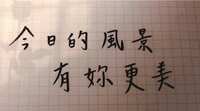 今日的風景
有妳更美